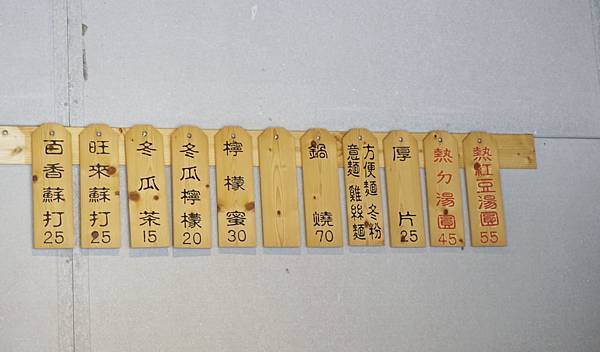 熱紅豆湯圓
55
熱ㄉ湯圓
45
厚片
25
方便麵 冬粉
意麵 雞絲麵
鍋燒
70
檸檬蜜
30
冬瓜檸檬
20
冬瓜茶
15
旺來蘇打
25
百香蘇打
25